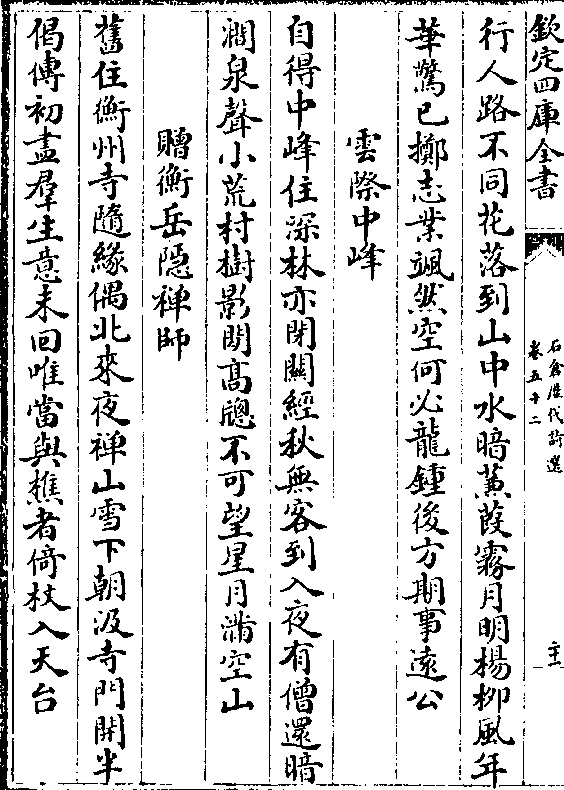 欽定四庫全書
石倉歷代詩選
卷五十二
行人路不同花落到山中水暗蒹葭霧月明楊柳風年
華驚已擲志業颯然空何必龍鍾後方期事遠公
雲際中峰
自得中峰住深林亦閉關經秋無客到入夜有僧還暗
澗泉聲小荒村樹影閒高牕不可望星月滿空山
贈衡岳隱禪師
舊住衡州寺隨緣偶北來夜禪山雪下朝汲寺門開半
偈傳初盡群生意未回唯當與樵者倚杖入天台